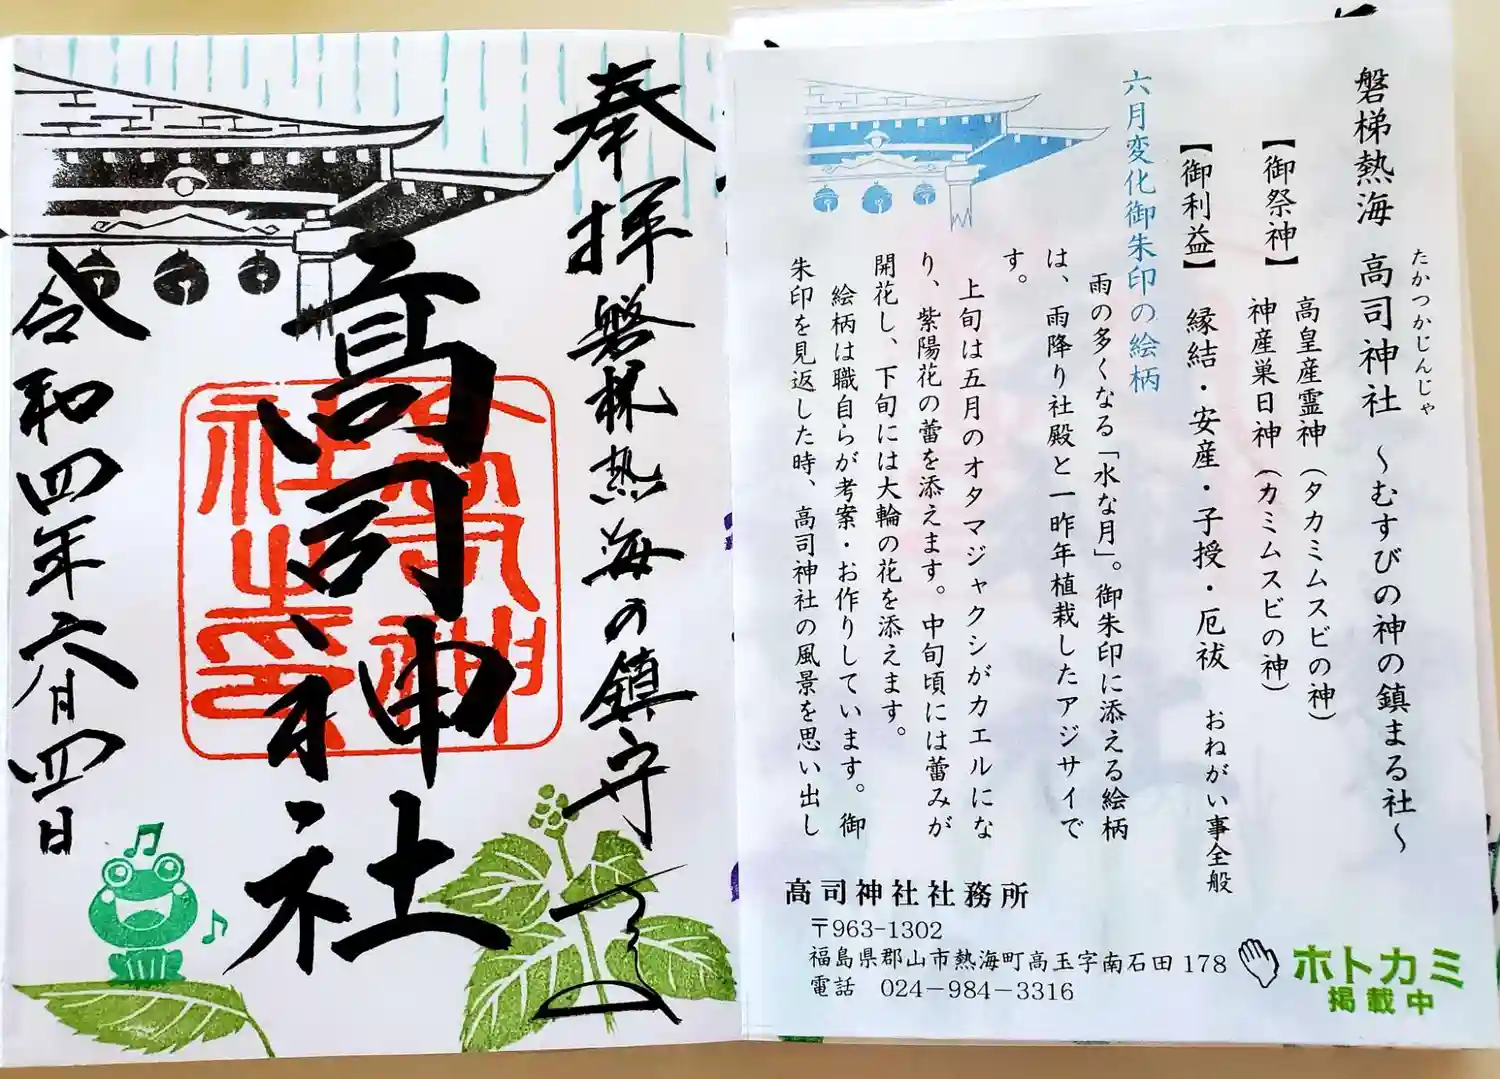 磐梯熱海 高司神社 ～むすびの神の鎮まる社～
たかつかじんじゃ
【御祭神】 高皇産霊神（タカミムスビの神）
神産巣日神（カミムスビの神）
【御利益】 縁結・安産・子授・厄祓 おねがい事全般
六月変化御朱印の絵柄
雨の多くなる「水な月」。御朱印に添える絵柄
は、雨降り社殿と一昨年植栽したアジサイで
す。
上旬は五月のオタマジャクシがカエルにな
り、紫陽花の蕾を添えます。中旬頃には蕾みが
開花し、下旬には大輪の花を添えます。
絵柄は職自らが考案・お作りしています。御
朱印を見返した時、高司神社の風景を思い出し
高司神社社務所
〒963-1302
福島県郡山市熱海町高玉字南石田 178
電話 024－984－3316
ホトカミ
掲載中
奉拝 磐梯熱海の鎮守
高司神社
高司神社之印
令和四年六月四日